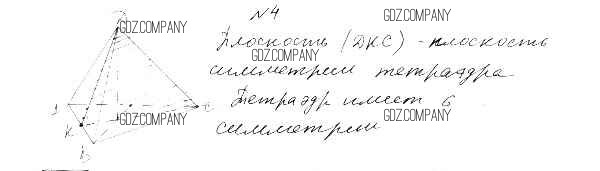 N4
GDZ.COMPANY
GDZ.COMPANY
Плоскость (ДКС) - плоскость
GDZ.COMPANY
симметрии тетраэдра
Тетраэдр имеет 6
GDZ.COMPANY
GDZ.COMPANY
симметрии
К
В
С